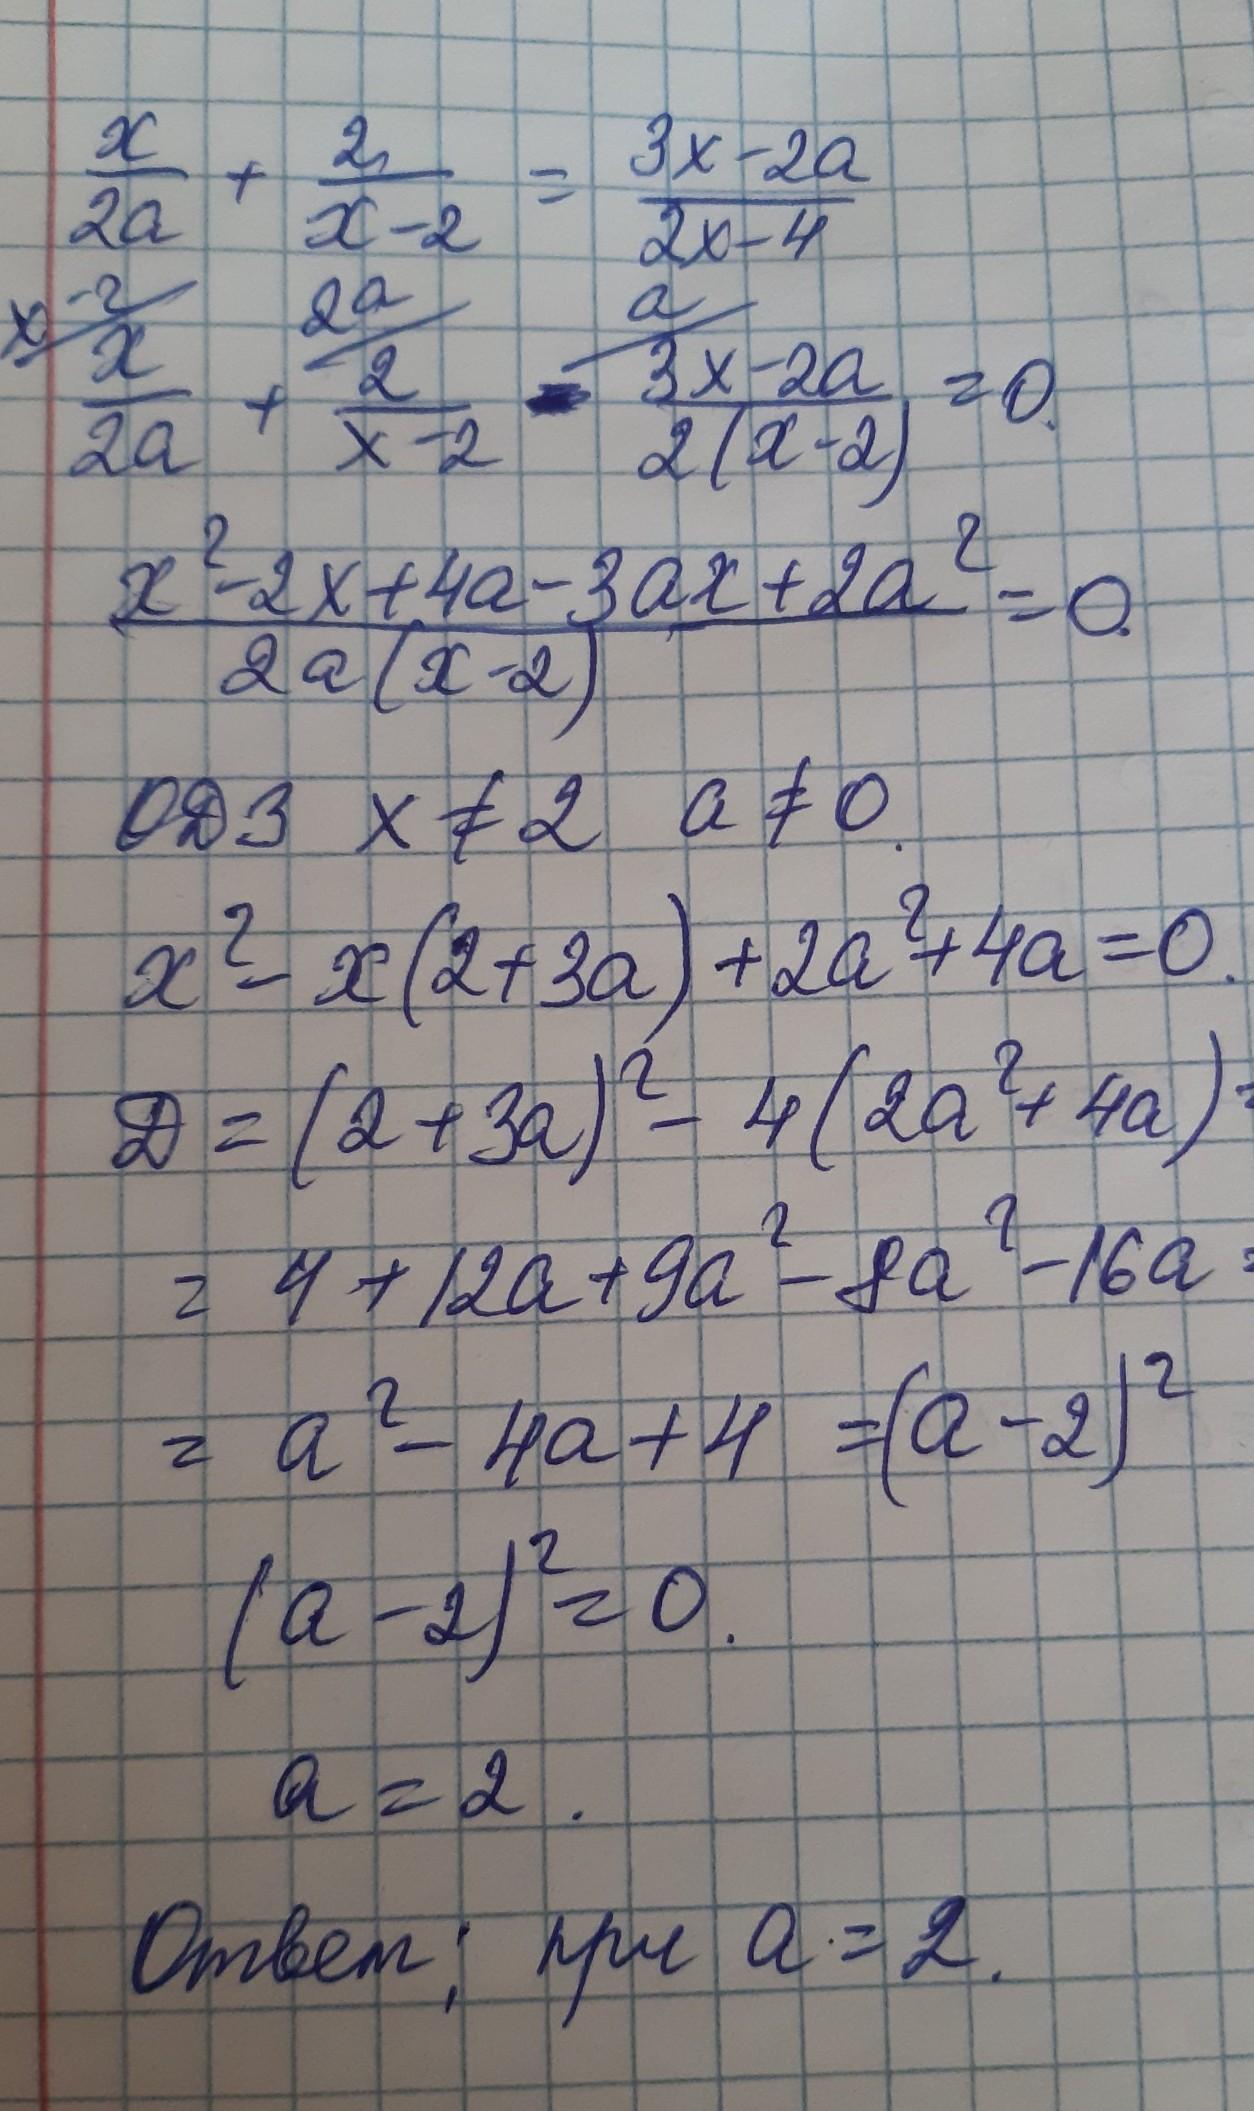 x/2a + 2/(x-2) = (3x-2a)/(2x-4)
x-2 2a a
x/2a + 2/(x-2) - (3x-2a)/(2(x-2)) = 0.
(x²-2x+4a-3ax+2a²)/(2a(x-2)) = 0.
ОДЗ x≠2 a≠0.
x² - x(2+3a)+2a²+4a=0.
Д = (2+3a)² - 4(2a²+4a) =
= 4+12a+9a²-8a²-16a =
= a²-4a+4 =(a-2)²
(a-2)² = 0.
a = 2.
Ответ: при a = 2.